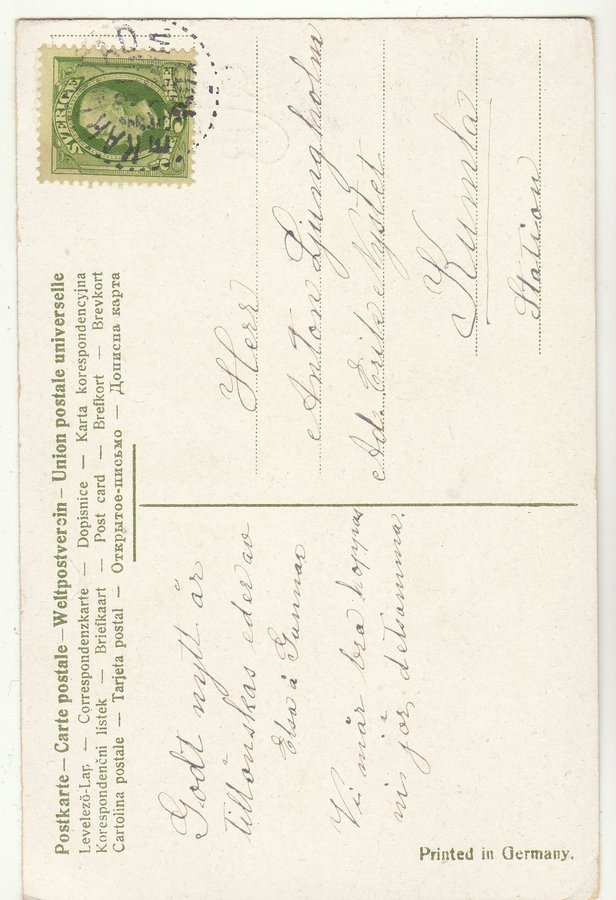 Postkarte – Carte postale – Weltpostverein – Union postale universelle
Levelező-Lap — Correspondenzkarte — Dopisnice — Karta korespondencyjna
Korespondenční lístek — Briefkaart — Post card — Brefkort — Brevkort
Cartolina postale — Tarjeta postal — Открытое-письмо — Дописна карта
SVERIGE
Godt nytt år
tillönskas eder av
Elsa å Gunnar
Vi mår bra hoppas
ni gör detsamma.
Herr
Anton Ljungholm
Ad. Erik Nystet
Kumla
Station
Printed in Germany.